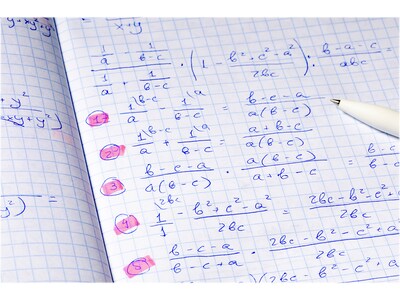 x+y
(1/a - 1/(b-c)) / (1/a + 1/(b-c)) · (1 - (b²+c²-a²)/2bc) : (b-a-c)/abc =
1) 1\b-c/a - 1\a/(b-c) = (b-c-a)/a(b-c)
2) 1\b-c/a + 1\a/(b-c) = (a+b-c)/a(b-c)
3) (b-c-a)/a(b-c) · a(b-c)/(a+b-c) = b-c
4) 1\2bc/1 - (b²+c²-a²)/2bc = (2bc-b²-c²+)/2bc
5) (b-c-a)/(b-c+a) · (2bc-b²-c²+)/2bc
(2bc-b²-c²+
y²
xy+y²)
y²) =